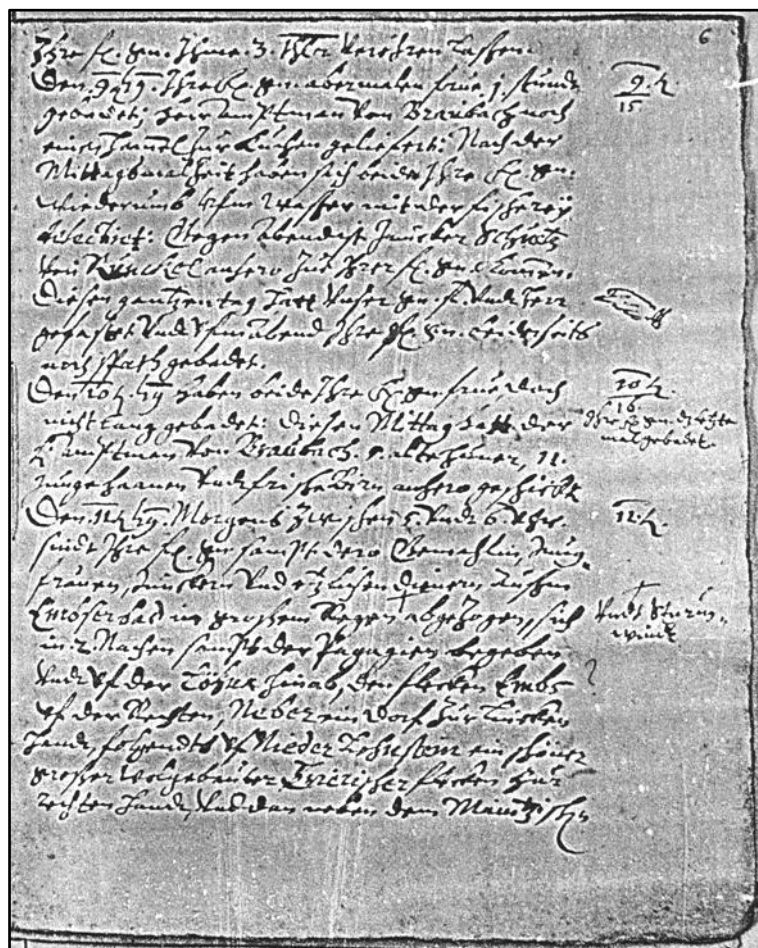 6
Ihre fl. gn. Ihme. 3. Thlr verehren lassen.
Den 9. Ihre fl. gn. abermalen frue j. stunde
gebadet; herr amptman von Braubach noch
einen hamel zur kuchen geliefert: Nach der
Mittagsmalzeit haben sich beide Ihre fl. gn.
wiederumb vfm wasser mit der fischerey
delectirt: Gegen abend ist Juncker Schutz
von Runckel anhero zu Ihrer fl. gn. kommen.
Diesen gantzen tag hatt vnser gn. f. vndt herr
gefastet vndt vfm abend Ihre fl. gn. beiderseits
noch spath gebadet.
Den 10. haben beide Ihre fl. gn. frue, doch
nicht lang gebadet: Diesen Mittag hatt der
h. amptman von Braubach. alte huner, 11.
junge haanen vndt frische Birn anhero geschickt
Den 11. Morgens zwischen 5. vndt 6 vhr.
sindt Ihre fl. gn. sampt dero Gemahlin, Jung-
frauen, junckern vnd dienern, aussm
Embserbad im grossem Regen + abgezogen, sich
in 2. Nachen sampt der Pagagien begeben
vndt vf der Löhne hinab, den flecken Embs
vf der Rechten, Neber ein dorf zur lincken
handt, folgendts vf Nieder Lehnstein ein schöner
grosser wolgebauter Trierischer flecken zur
rechten handt, vnd dan neben dem Maintzischen
9.
15
10.
16
Ihre fl. gn. letzte
mal gebadet.
11.
+
vndt Sturm-
windt
?